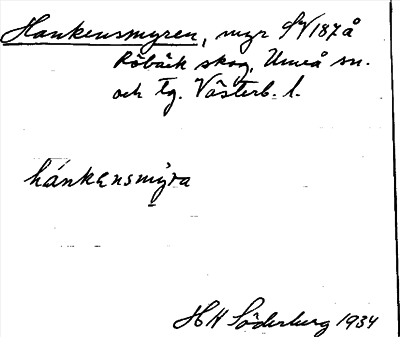 Hankensmyren, myr 9m/187å
Röbäck skog, Umeå sn.
och tg. Västerb. l.
hánkensmy̌ra
H H Söderberg 1934